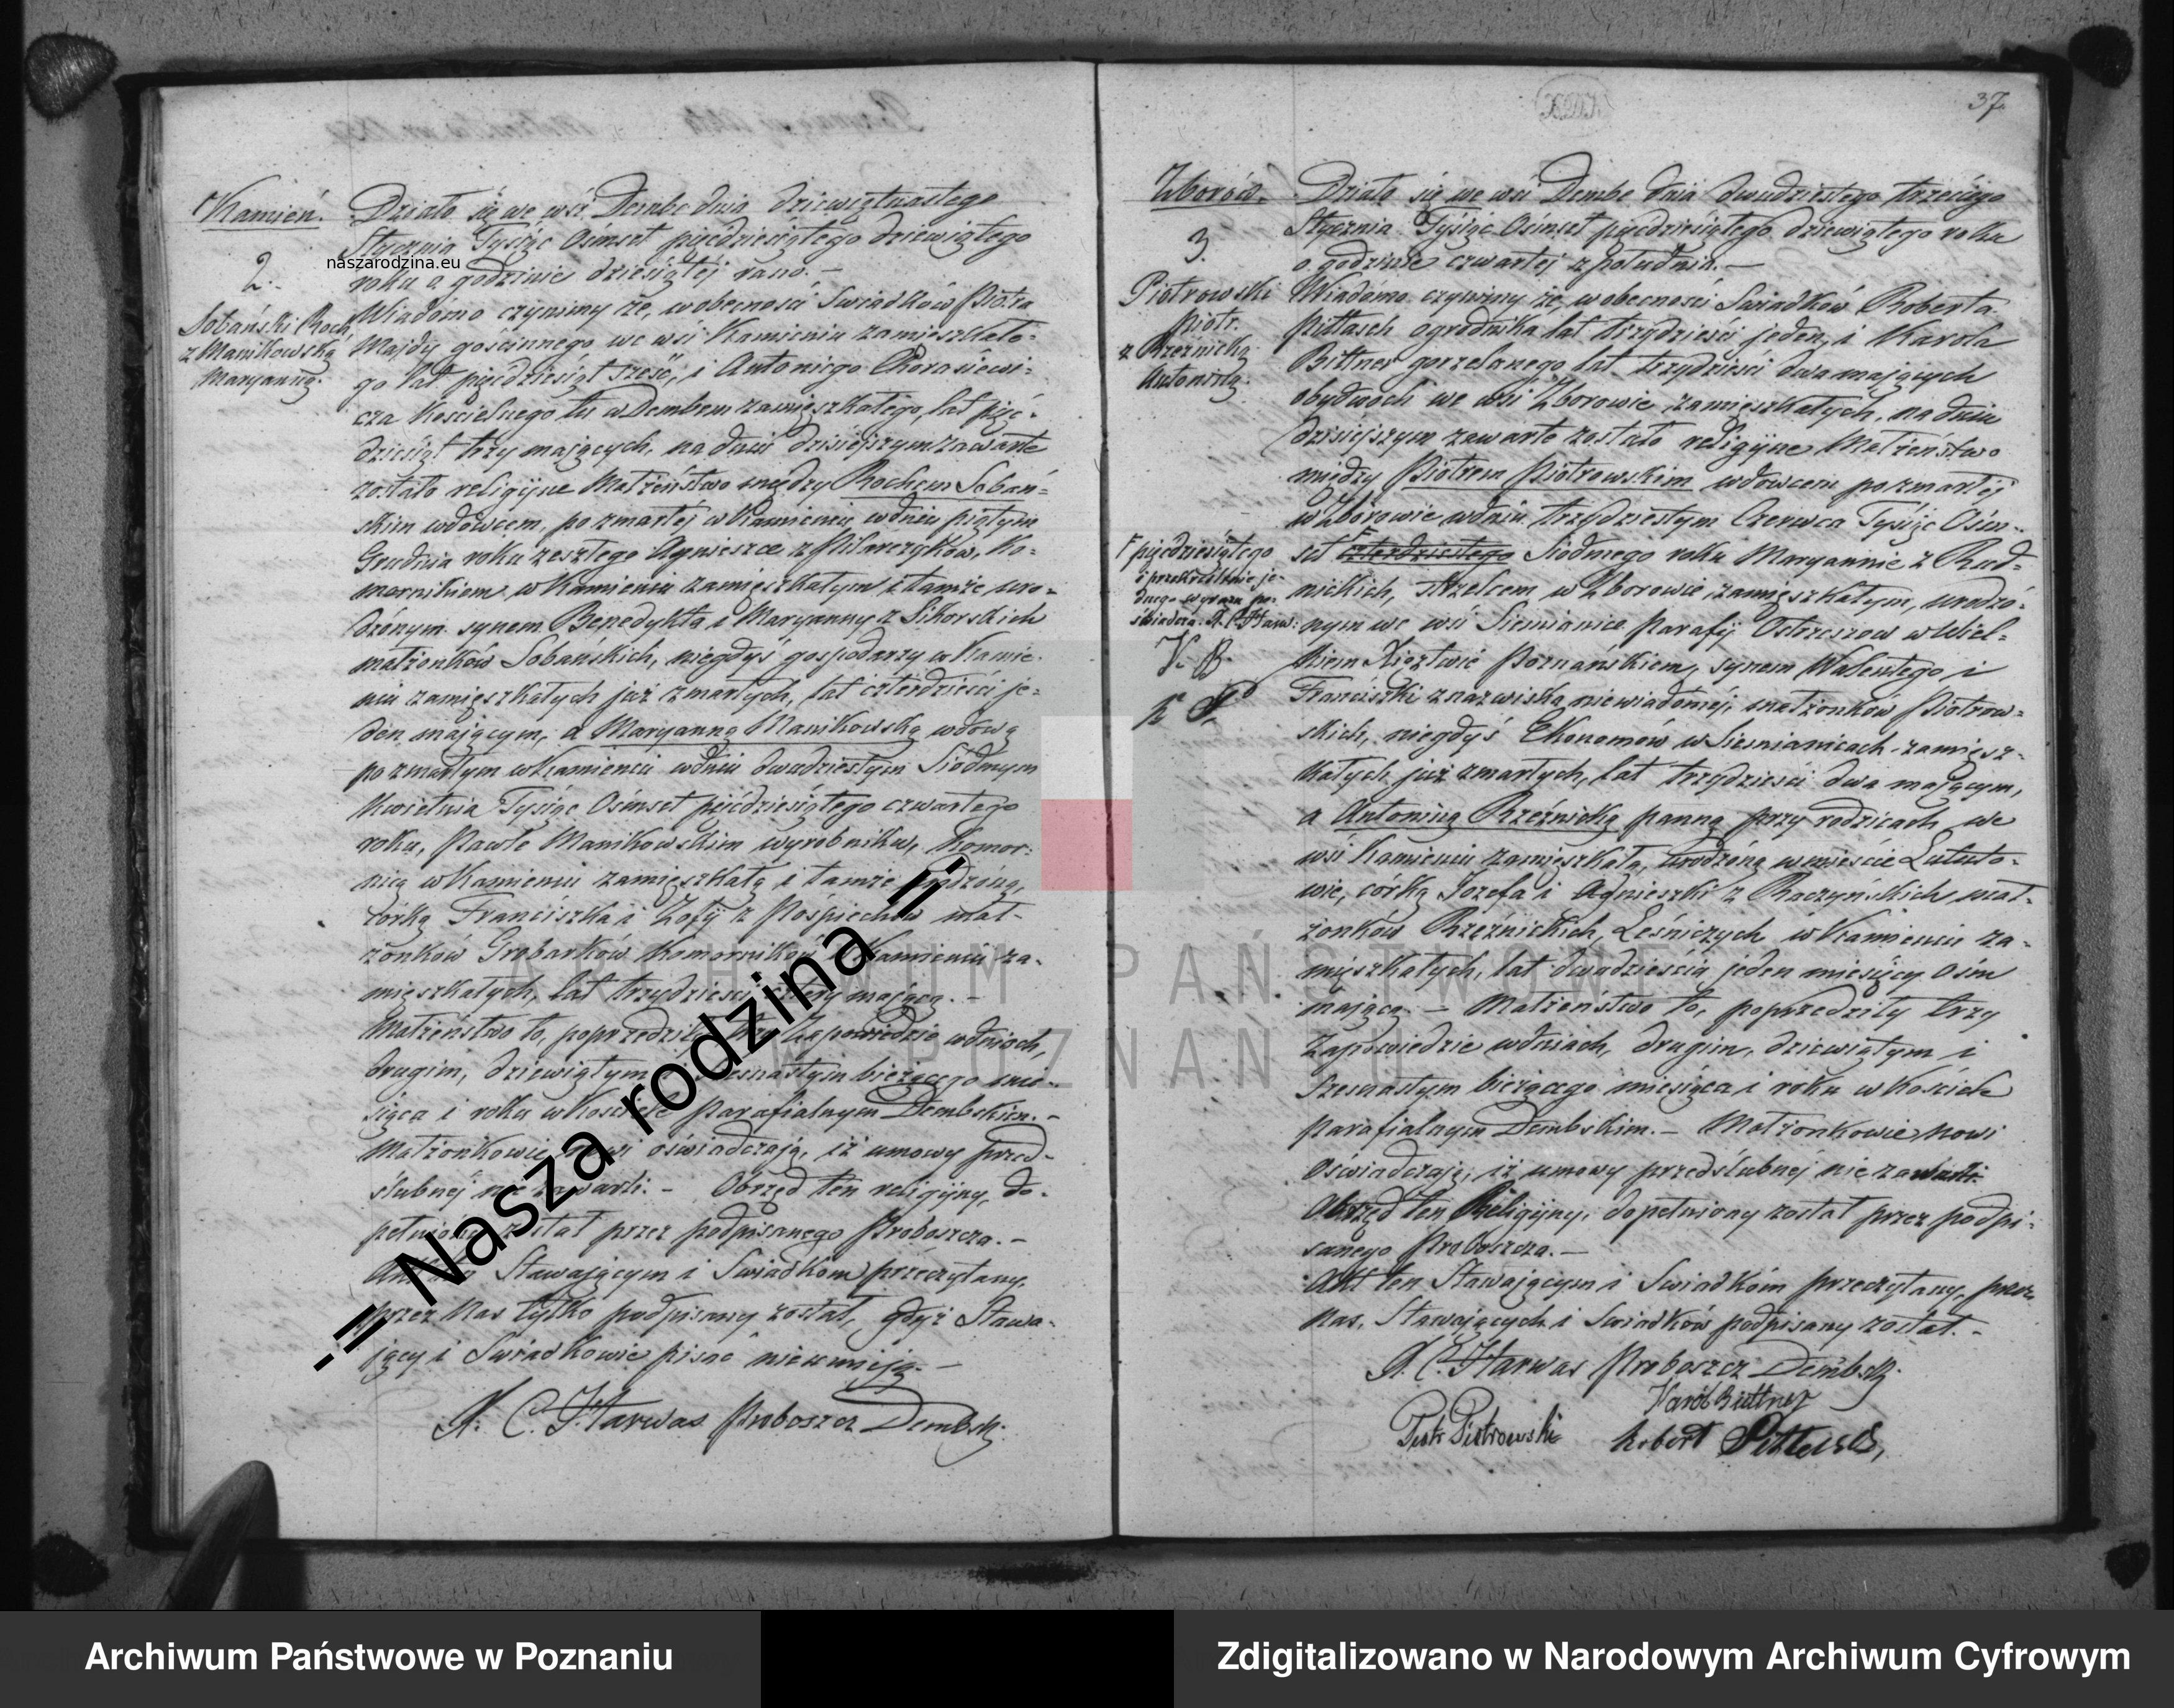 Kamień.
2.
Sobański Roch
z Manikowską
Maryanną.
Działo się we wsi Dembe dnia dziewiętnastego
Stycznia Tysiąc Ośmset pięćdziesiątego dziewiątego
naszarodzina.eu
roku o godzinie dziesiątej rano. –
Wiadomo czynimy że, w obecności Swiadków Piotra
Majdy gościnnego we wsi Kamieniu zamieszkałe-
go lat pięćdziesiąt sześć, i Antoniego
cza Kościelnego tu w Dembem zamięszkałego, lat pięć-
dziesiąt trzy mających, na dniu dzisiejszym zawarte
zostało religijne Małżeństwo między Rochem Sobań-
skim wdowcem, po zmarłéj w Kamieniu w dniu piątym
Grudnia roku zeszłego Agnieszce z Pilarczyków, Ko-
mornikiem w Kamieniu zamięszkałym i tamże uro-
dzonym synem Benedykta i Maryanny z Sikorskich
małżonków Sobańskich, niegdyś gospodarzy w Kamie-
niu zamięszkałych już zmarłych, lat czterdzieści je-
den mającym, a Maryanną Manikowską wdową
po zmarłym w Kamieniu w dniu dwudziestym Siódmym
Kwietnia Tysiąc Ośmset pięćdziesiątego czwartego
roku, Pawle Manikowskim wyrobniku, Komor-
nicą w Kamieniu zamięszkałą i tamże urodzoną,
córką Franciszka i Zofij z Pośpiechów mał-
żonków Grobarków Komorników w Kamieniu za-
mięszkałych, lat trzydzieści cztery mającą. –
Małżeństwo to, poprzedziły trzy Zapowiedzie w dniach,
drugim, dziewiątym i szesnastym bieżącego mie-
siąca i roku w Kościele Parafialnym Dembskim. –
Małżonkowie nowi oświadczają, iż umowy przed-
ślubnéj nie zawarli. – Obrzęd ten religijny, do-
pełniony został przez podpisanego Proboszcza. –
Akt ten Stawającym i Swiadkom przeczytany,
przez Nas tylko podpisany został, gdyż Stawa-
jący i Swiadkowie pisać nieumieją. –
X. C. Harwas Proboszcz Dembsk.
-= Nasza rodzina =-
37.
Zborów.
3.
Piotrowski
Piotr.
z Rzeźnicką
Antoniną.
Działo się we wsi Dembe dnia dwudziestego trzeciego
Stycznia Tysiąc Ośmset pięćdziesiątego dziewiątego roku
o godzinie czwartej z południa. –
Wiadomo czynimy że, w obecności Swiadków Roberta
Pittasch ogrodnika lat trzydzieści jeden, i Karola
Bittner gorzelanego lat trzydzieści dwa mających
obydwóch we wsi Zborowie zamięszkałych, na dniu
dzisiejszym zawarte zostało religijne Małżeństwo
między Piotrem Piotrowskim wdowcem po zmarłéj
w Zborowie w dniu trzydziestym Czerwca Tysiąc Ośm-
set czterdziestego Siódmego roku Maryannie z Rud-
pięćdziesiątego
i przekreślenie je-
dnego wyrazu po-
świadcza X. C. Harw:
nickich, Strzelcem w Zborowie zamięszkałym, urodzo-
nym we wsi Siemianice Parafij Ostrzeszow w Wiel-
kiem Xięztwie Poznańskiem, synem Walentego i
Franciszki z nazwiska niewiadoméj, małżonków Piotrow-
skich, niegdyś Ekonomów w Siemianicach zamięsz-
kałych już zmarłych, lat trzydzieści dwa mającym,
a Antoniną Rzeźnicką panną przy rodzicach we
wsi Kamieniu zamięszkałą, urodzoną w mieście Lututo-
wie, córką Józefa i Agnieszki z Raczyńskich mał-
żonków Rzeźnickich, Leśniczych w Kamieniu za-
mięszkałych, lat dwadzieścia jeden miesięcy ośm
mającą. – Małżeństwo to, poprzedziły trzy
Zapowiedzie w dniach, drugim, dziewiątym i
szesnastym bieżącego miesiąca i roku w Kościele
parafialnym Dembskim. – Małżonkowie nowi
oświadczają, iż umowy przedślubnéj nie zawarli.
Obrzęd ten Religijny, dopełniony został przez podpi-
sanego Proboszcza. –
Akt ten Stawającym i Swiadkóm przeczytany, przez
Nas, Stawających i Swiadków podpisany został. –
X. C. Harwas Proboszcz Dembsk.
Karol Bittner
Piotr Piotrowski
Robert
ARCHIWUM PAŃSTWOWE
W POZNANIU
Archiwum Państwowe w Poznaniu
Zdigitalizowano w Narodowym Archiwum Cyfrowym